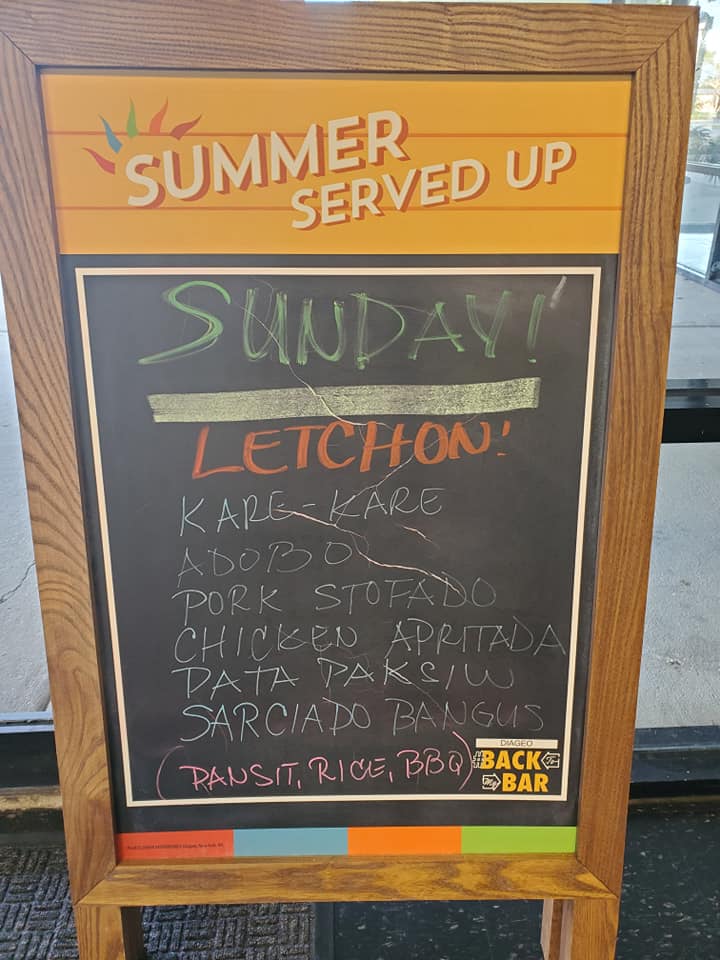 SUMMER
SERVED UP
SUNDAY!
LETCHON!
KARE-KARE
ADOBO
PORK STOFADO
CHICKEN APRITADA
PATA PAKSIW
SARCIADO BANGUS
(PANSIT, RICE, BBQ)
DIAGEO
BACK
BAR